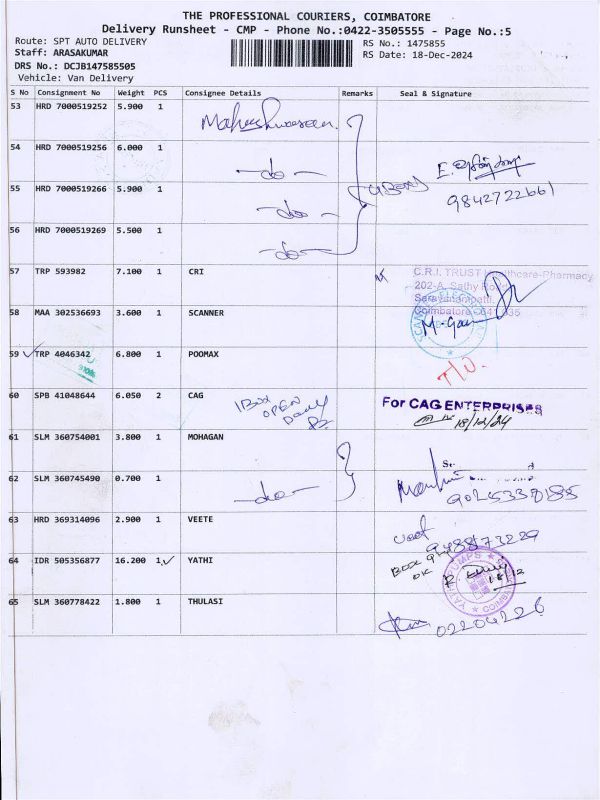 THE PROFESSIONAL COURIERS, COIMBATORE
Delivery Runsheet - CMP - Phone No.:0422-3505555 - Page No.:5
Route: SPT AUTO DELIVERY
RS No.: 1475855
Staff: ARASAKUMAR
RS Date: 18-Dec-2024
DRS No.: DCJB147585505
Vehicle: Van Delivery
S No Consignment No Weight PCS Consignee Details Remarks Seal & Signature
53 HRD 7000519252 5.900 1 Maheshwareen
54 HRD 7000519256 6.000 1 -do-
55 HRD 7000519266 5.900 1 -do-
9842722661
56 HRD 7000519269 5.500 1 -do-
57 TRP 593982 7.100 1 CRI
C.R.I. TRUST Healthcare-Pharmacy
202-A, Sathy Road
Saravanampatti,
Coimbatore - 641 035
58 MAA 302536693 3.600 1 SCANNER
59 TRP 4046342 6.800 1 POOMAX
60 SPB 41048644 6.050 2 CAG
1 Box
OPEN
For CAG ENTERPRISES
18/12/24
61 SLM 360754001 3.800 1 MOHAGAN
62 SLM 360745490 0.700 1 -do-
90245330185
63 HRD 369314096 2.900 1 VEETE
9488773229
64 IDR 505356877 16.200 1 YATHI
Box
OK
YATHI PUMPS
COIMBATORE
18/12
65 SLM 360778422 1.800 1 THULASI
02204226